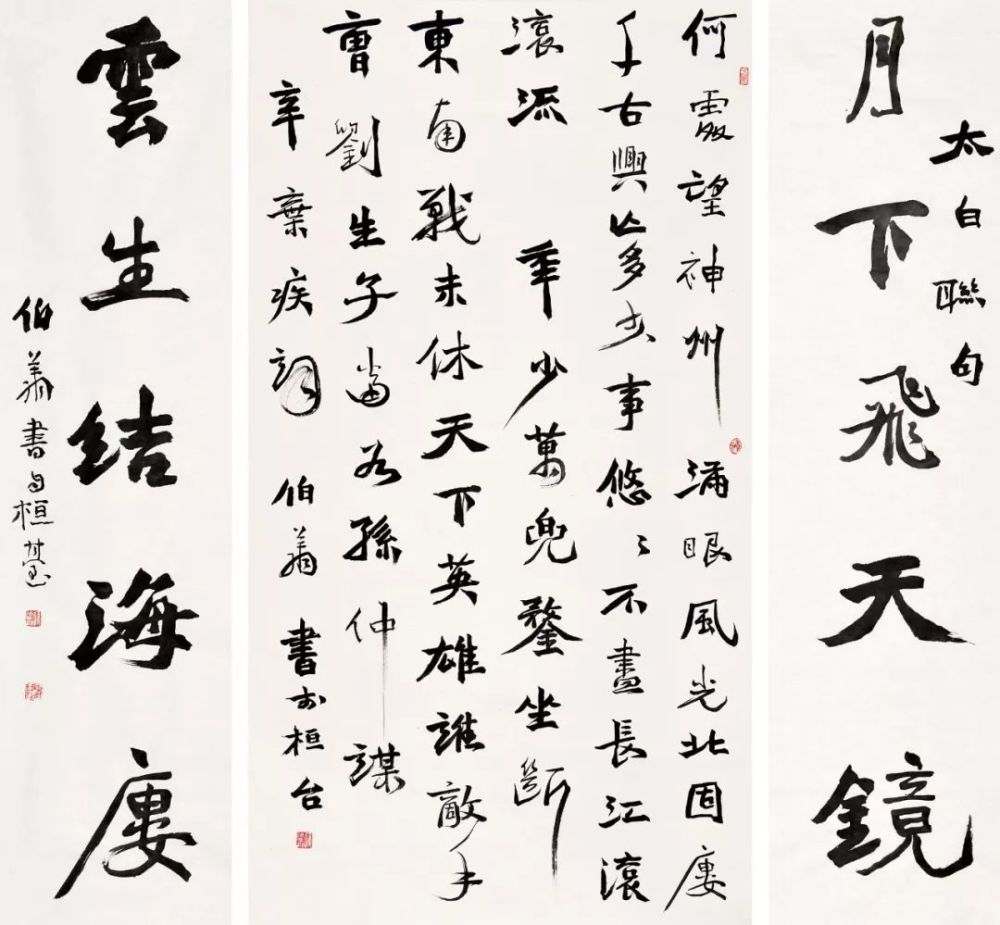 太白聯句
月下飛天鏡
何處望神州 滿眼風光北固廔
千古興亡多少事悠〻不盡長江滾
滾流 年少萬兜鍪坐斷
東南戰未休天下英雄誰敵手
曹劉生子當孫仲謀
辛棄疾詞 伯 書於桓台
雲生結海廔
伯 書 桓臺